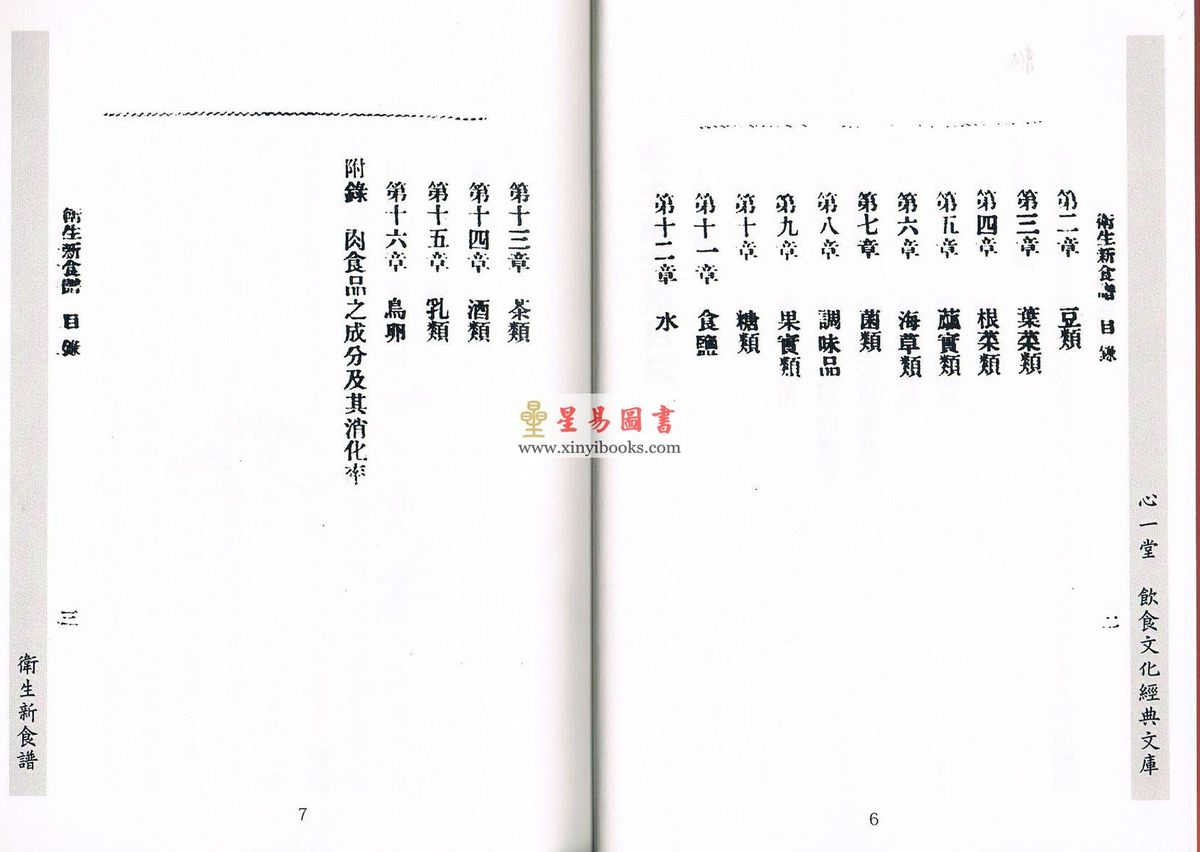 心一堂 飲食文化經典文庫
衛生新食譜 目錄
二
第二章 豆類
第三章 葉菜類
第四章 根菜類
第五章 蓏實類
第六章 海草類
第七章 菌類
第八章 調味品
第九章 果實類
第十章 糖類
第十一章 食鹽
第十二章 水
6
第十三章 茶類
第十四章 酒類
第十五章 乳類
第十六章 鳥卵
附錄 肉食品之成分及其消化率
衛生新食譜 目錄
三
衛生新食譜
7
星易圖書
www.xinyibooks.com